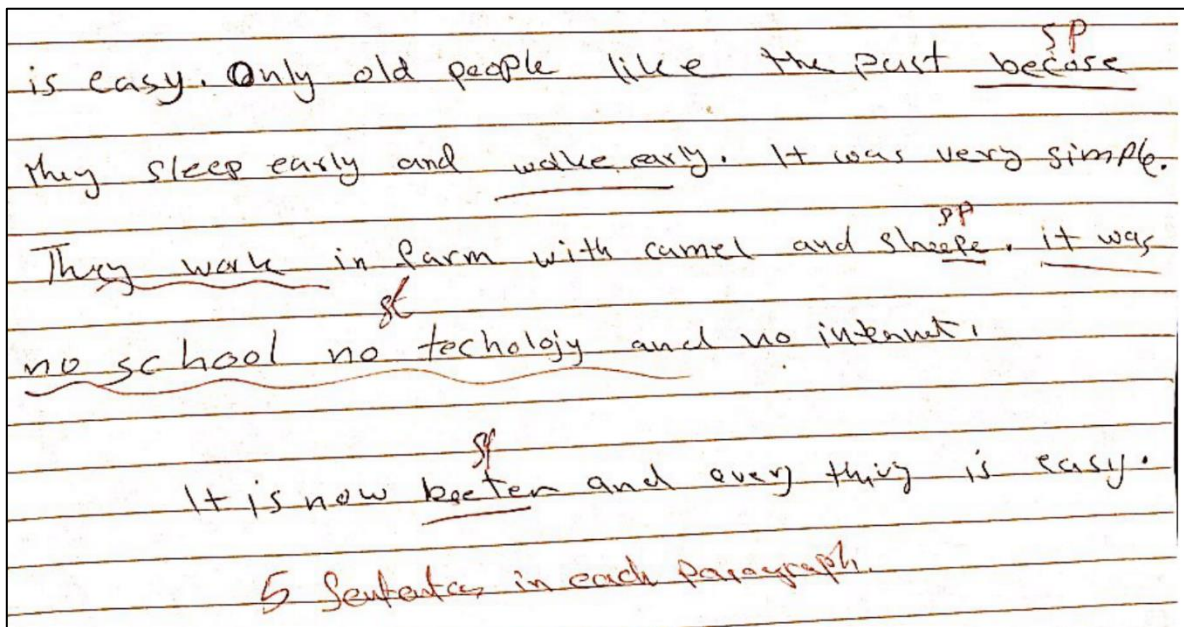 SP
is easy. Only old people like the past becose
they sleep early and walke early. It was very simple.
SP
They work in farm with camel and sheepe. it was
st
no school no techolojy and no internet.
sp
It is now beeter and every thing is easy.
5 Sentences in each paragraph.